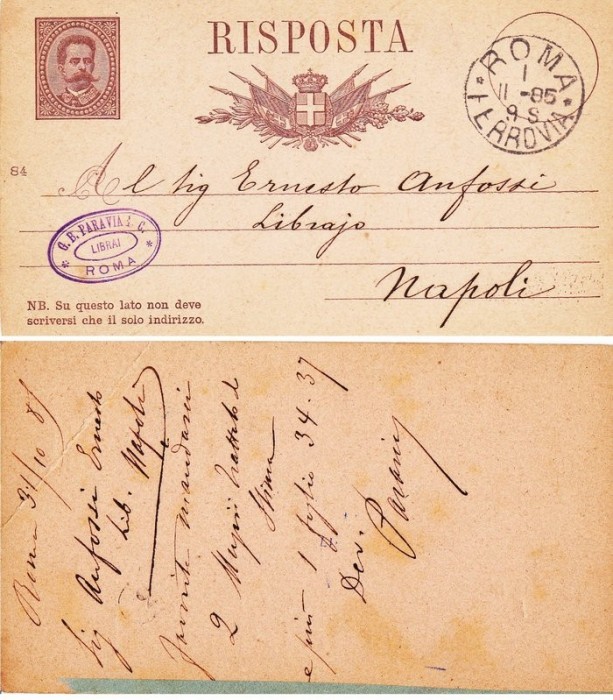 RISPOSTA
ROMA
1
11 -85
9 S
FERROVIA
84
Al Sig Ernesto Anfossi
Librajo
Napoli
G. B. PARAVIA & C.
LIBRAI
ROMA
NB. Su questo lato non deve
scriversi che il solo indirizzo.
Roma 31/10 85
Sig Anfossi Ernesto
Lib. Napoli
mandarci
2
e più 1 foglio 34. 37
Dev.
Paravia